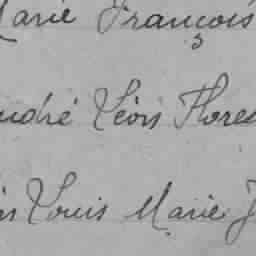 Marie François
André Léon Flores
Louis Marie J